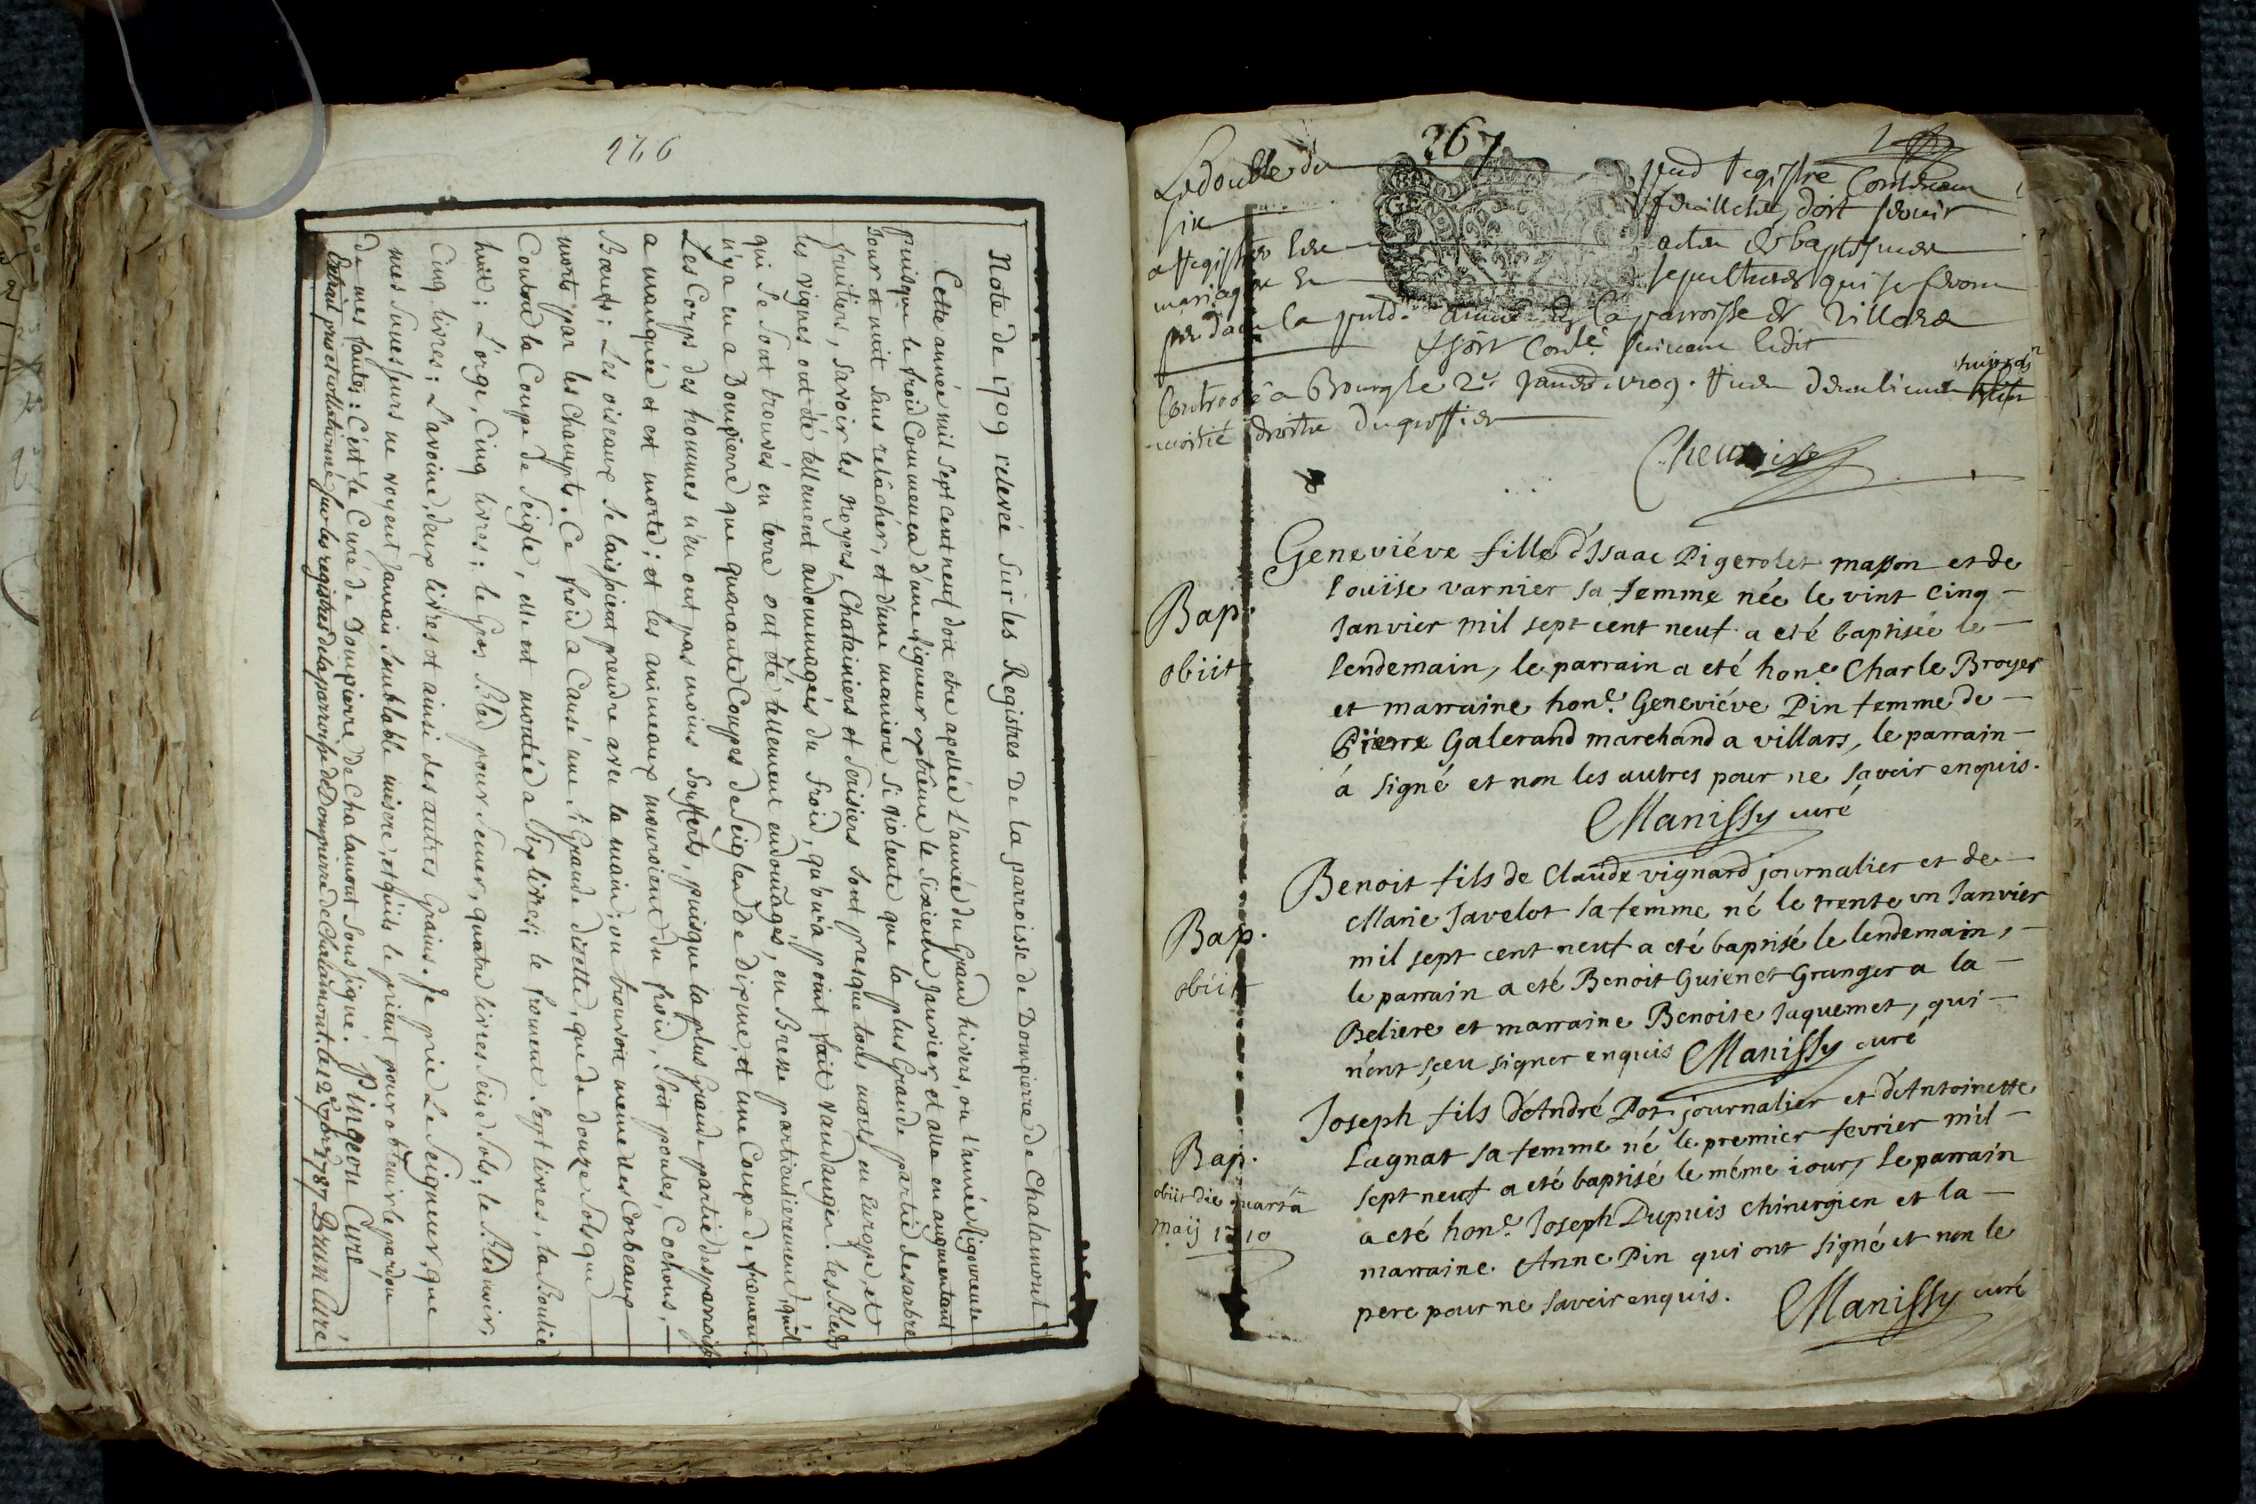 266
Note de 1709 relevée sur les Registres De la paroisse de Dompierre de Chalamont.
Cette année mil sept cent neuf doit etre apellée L'année du Grand hivers, ou l'année Rigoureuse
puisque le froid Commença d'une Rigueur extrême le Sixieme Janvier, et alla en augmentant
Jour et nuit sans relâcher, et d'une maniere si violente que la plus Grande partie des arbre
fruitiers, savoir les Noyers, Chataîniers et Serisiers sont presque tous morts en Europe, et
les vignes ont été tellement andommagées du froid, qu'on a point fait vandanger. les Bleds
qui se sont trouvés en terre ont été tellement endomagés, en Bresse particulierement, qu'il
n'y a eu a Dompierre que quarante Coupes de Seigle de Dixme, et une Coupe de froment.
Les Corps des hommes n'en ont pas moins soufferts, puisque la plus Grande partie des paroisse
a manquée et est morte; et les animeaux mouroient du froid, soit poules, Cochons,
Bœufs: Les oiseaux se laissoient prendre avec la main; on trouvoit meme des Corbeaux
morts par les Champts. Ce froid a Causé une si Grande disette, que de douze sols que
Coutoit la Coupe de Seigle, elle est montée a Six livres; le froment Sept livres, la Boulie
huit; L'orge, Cinq livres; le Gros Bled pour semer, quatre livres seise Sols; le Bled noir,
Cinq livres; L'avoine, deux livres et ainsi des autres Grains. Je prie Le Seigneur, que
mes Successeurs ne voyent Jamais semblable misere, et qu'ils le prient pour obtenir le pardon
de mes fautes: C'est le Curé de Dompierre de Chalamont Soussigné. Pingeon Curé
Extrait pris et collationné sur les registres de la parroisse de Dompierre de Chalamont. le 12 1787 Brun Curé
267
Le double du pnd Registre Contenan
six feuillets, doit servir
a Registrer les actes de baptesmes
mariages et sepultures qui se feron
la pnte année de la parroisse de Villars
Controolé a Bourg le 2e Janvier 1709.
moitié droitte du greffier
Geneviéve fille d'Isaac Pigerolet masson et de
Louise varnier sa femme née le vint cinq
Janvier mil sept cent neuf a eté baptisée le
lendemain, le parrain a eté hone Charle Broyer
et marraine hone. Geneviéve Pin femme de
Pierre Galerand marchand a villars, le parrain
á signé et non les autres pour ne savoir enquis.
Bap.
obiit
Manissy curé
Benoit fils de Claude vignard journalier et de
Marie Javelot sa femme né le trente un Janvier
mil sept cent neuf a eté baptisé le lendemain,
le parrain a eté Benoit Guienet Granger a la
Beliere et marraine Benoite Jaquemet, qui
n'ont sçeu signer enquis Manissy curé
Bap.
obiit
Joseph fils d'André Pot journalier et d'Antoinette
Lagnat sa femme né le premier fevrier mil
sept neuf a eté baptisé le méme iour, le parrain
a eté hone. Joseph Dupuis chirurgien et la
marraine Anne Pin qui ont signé et non le
pere pour ne savoir enquis. Manissy curé
Bap.
obiit die quarta
Maij 1710